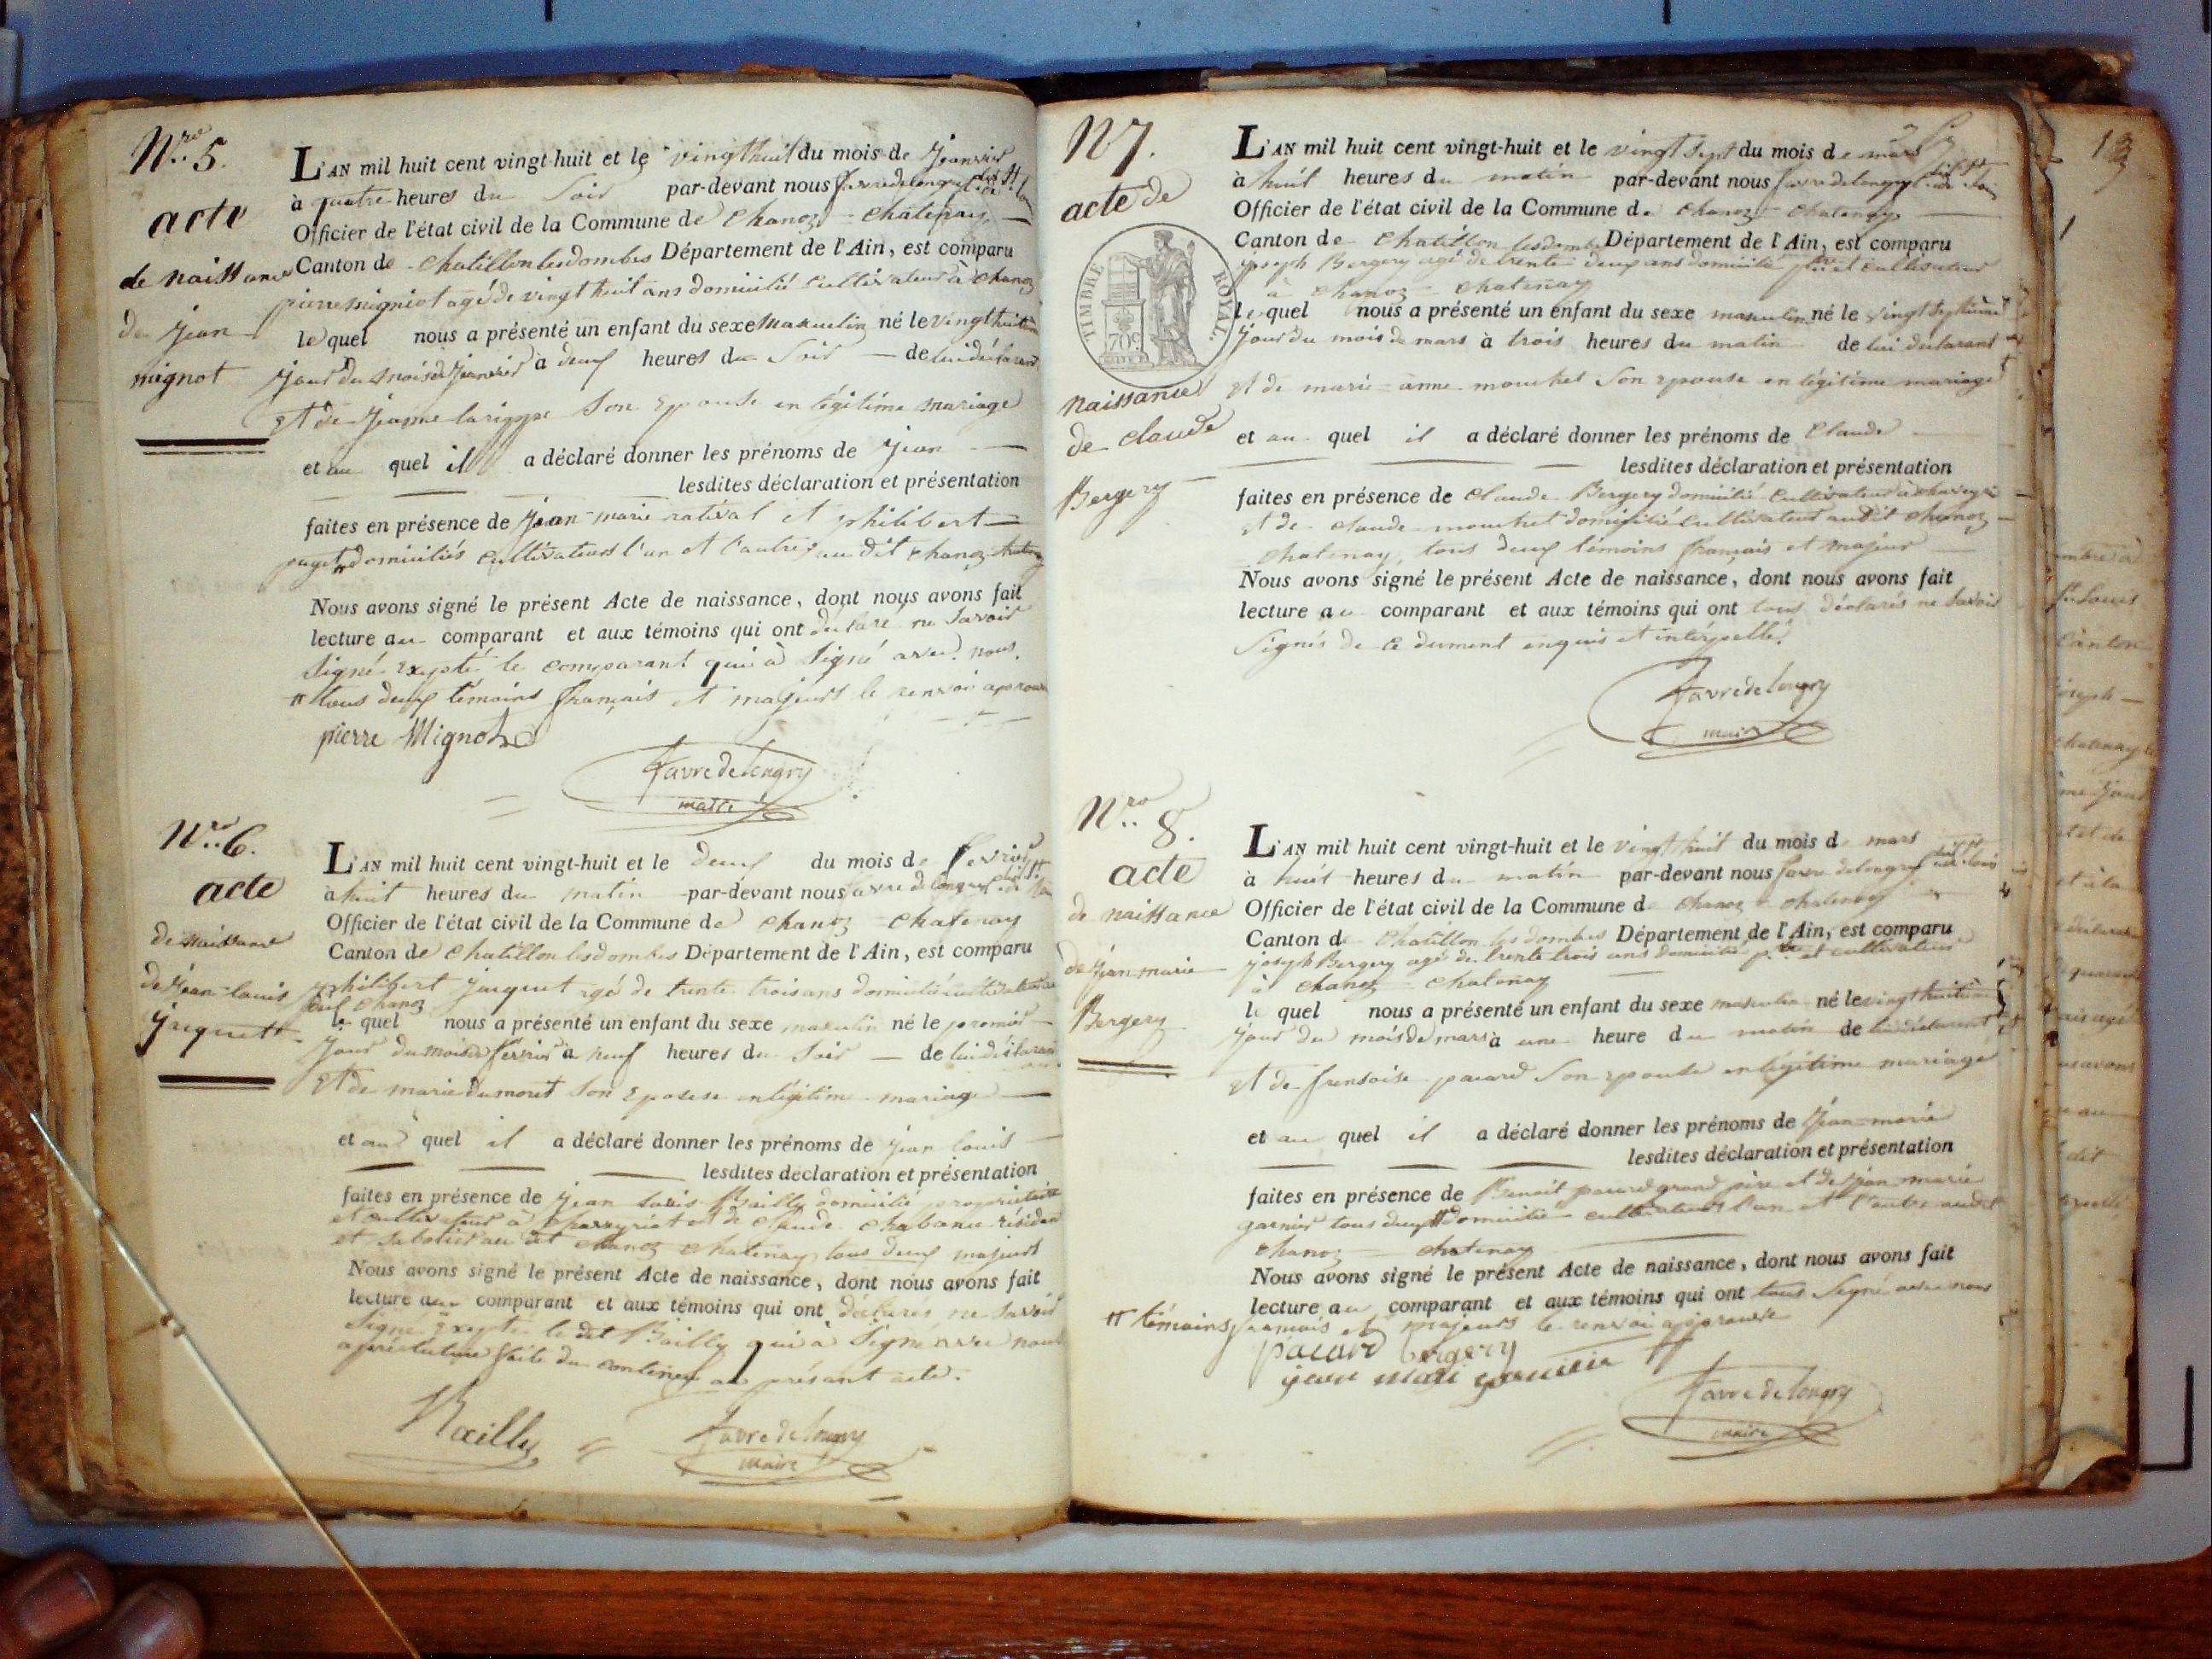 Nro 5.
acte
de naissance
de jean
mignot
L'AN mil huit cent vingt-huit et le vingthuit du mois de Janvier
à quatre heures du Soir par-devant nous favredelongry
Officier de l'état civil de la Commune de Chanoz - Chatenay
Canton de Chatillon lesdombes Département de l'Ain, est comparu
pierre migniot agé de vingt huit ans domicilié Cultivateur à Chanoz
le quel nous a présenté un enfant du sexe Masculin né le vingthuitieme
jour du mois de janvier à deux heures du Soir — de lui déclarant
et de jeanne larippe Son Epouse en légitime mariage
et au quel il a déclaré donner les prénoms de jean
lesdites déclaration et présentation
faites en présence de jean-marie rativat et philibert
puget domiciliés Cultivateurs l'un et l'autre au dit Chanoz
Nous avons signé le présent Acte de naissance, dont nous avons fait
lecture au comparant et aux témoins qui ont déclaré ne Savoir
Signé Exepté le comparant qui à Signé avec nous.
tous deux témoins français et majeurs le renvoi approuvé
pierre Mignot
favredelongry
maire
Nro 6.
acte
de naissance
de jean-louis
juquett
L'AN mil huit cent vingt-huit et le deux du mois de fevrier
à huit heures du matin par-devant nous favre de longry
Officier de l'état civil de la Commune de Chanoz Chatenay
Canton de Chatillon lesdombes Département de l'Ain, est comparu
philibert juquet agé de trente trois ans domicilié cultivateur
Chanoz
le quel nous a présenté un enfant du sexe masculin né le premier
jour du mois de fevrier à neuf heures du Soir — de lui déclarant
et de marie dumont Son Epouse en légitime mariage
et au quel il a déclaré donner les prénoms de jean louis
lesdites déclaration et présentation
faites en présence de jean louis Bailly domicilié propriétaire
et cultivateur à et de Claude Chabanu résident
et Sabotier au dit Chanoz Chatenay tous deux majeurs
Nous avons signé le présent Acte de naissance, dont nous avons fait
lecture au comparant et aux témoins qui ont déclarés ne Savoir
Signé Exepté le dit Bailly qui à Signé avec nous
après lecture faite du contenu au présant acte.
Bailly
favre de longry
maire
N 7.
acte de
TIMBRE ROYAL.
70c
naissance
de claude
Bergery
L'AN mil huit cent vingt-huit et le vingt Sept du mois de mars
à huit heures du matin par-devant nous favredelongry
Officier de l'état civil de la Commune de Chanoz - Chatenay
Canton de Chatillon lesdombes Département de l'Ain, est comparu
joseph Bergery agé de trente deux ans domicilié pre et cultivateur
à Chanoz - Chatenay
le quel nous a présenté un enfant du sexe masculin né le vingt Septième
jour du mois de mars à trois heures du matin de lui déclarant
et de marie-anne mouchet Son epouse en légitime mariage
et au quel il a déclaré donner les prénoms de Claude
lesdites déclaration et présentation
faites en présence de Claude Bergery domicilié Cultivateur à
et de claude mouchet domicilié cultivateur audit Chanoz
Chatenay, tous deux témoins français et majeur
Nous avons signé le présent Acte de naissance, dont nous avons fait
lecture au comparant et aux témoins qui ont tous déclarés ne Savoir
Signés de ce dument enquis et interpellé.
favredelongry
maire
Nro 8.
acte
de naissance
de jean marie
Bergery
L'AN mil huit cent vingt-huit et le vingt huit du mois de mars
à huit heures du matin par-devant nous favre delongry
Officier de l'état civil de la Commune d Chanoz - chatenay
Canton d Chatillon les dombes Département de l'Ain, est comparu
joseph Bergery agé de trente trois ans domicilié pre et cultivateur
à Chanoz - Chatenay
le quel nous a présenté un enfant du sexe masculin né le vingthuitième
jour du mois de mars à une heure du matin de lui déclarant
et de fransoise pacard Son epouse en légitime mariage
et au quel il a déclaré donner les prénoms de jean-marie
lesdites déclaration et présentation
faites en présence de Benoit pacard grand père et de jean-marie
garnier tous deux domicilié cultivateurs l'un et l'autre audit
Chanoz - chatenay
Nous avons signé le présent Acte de naissance, dont nous avons fait
lecture au comparant et aux témoins qui ont tous Signé avec nous
témoins français et majeurs le renvoi approuvé
pacard bergery
jean mari garnier
favredelongry
maire
13